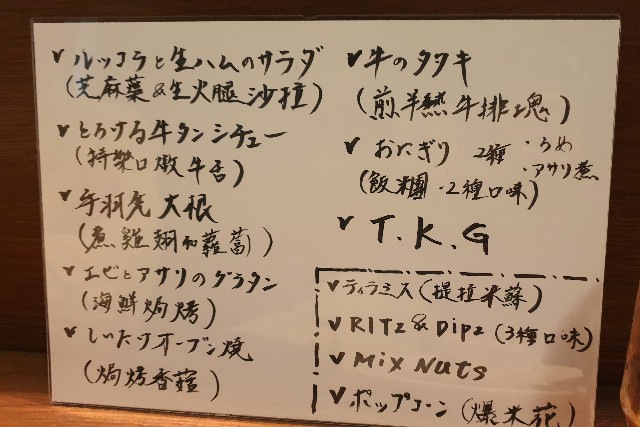 ルッコラと生ハムのサラダ
(芝麻葉&生火腿沙拉)
とろける牛タンシチュー
(特樂口燉牛舌)
手羽先大根
(煮雞翅和蘿蔔)
エビとアサリのグラタン
(海鮮焗烤)
しいたけオーブン焼
(焗烤香菇)
牛のタタキ
(煎半熟牛排塊)
おにぎり 2種 ・うめ
・アサリ煮
(飯糰・2種口味)
T.K.G
ティラミス(提拉米蘇)
RITZ & Dipz (3種口味)
MIX NUTS
ポップコーン (爆米花)